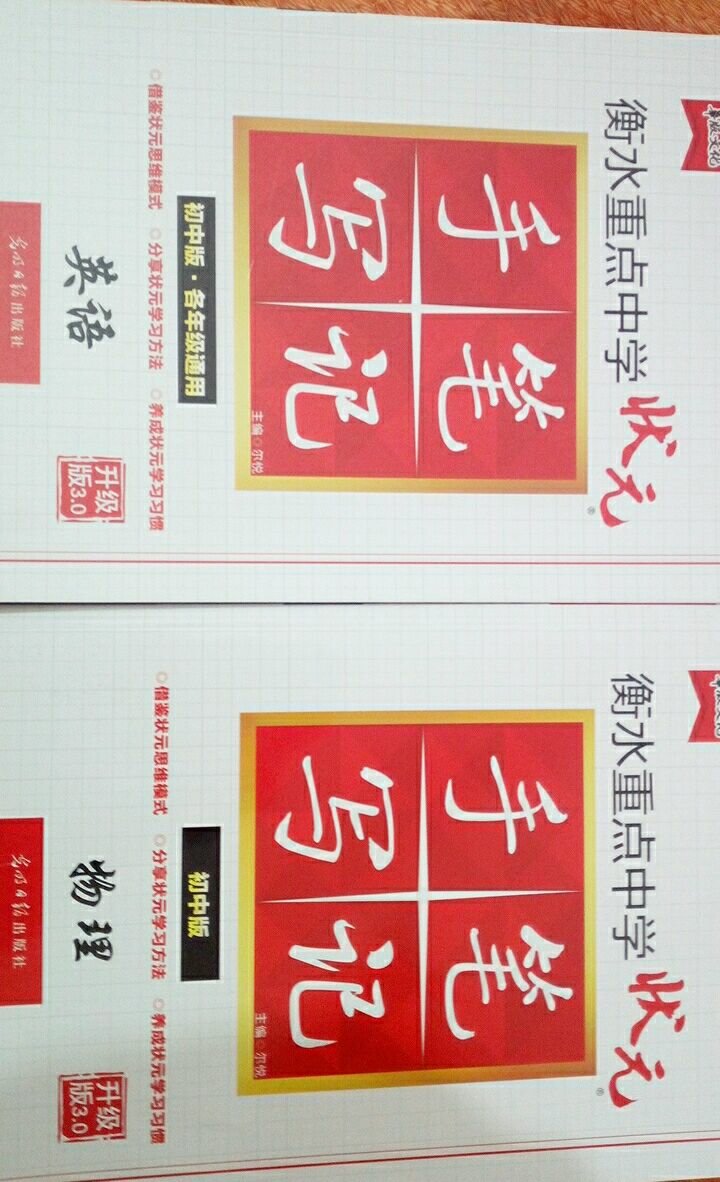 衡水重点中学状元®
手写笔记
主编◎尔悦
初中版·各年级通用
◎借鉴状元思维模式 ◎分享状元学习方法 ◎养成状元学习习惯
英语
升级版3.0
光明日报出版社
衡水重点中学状元®
手写笔记
主编◎尔悦
初中版
◎借鉴状元思维模式 ◎分享状元学习方法 ◎养成状元学习习惯
物理
升级版3.0
光明日报出版社